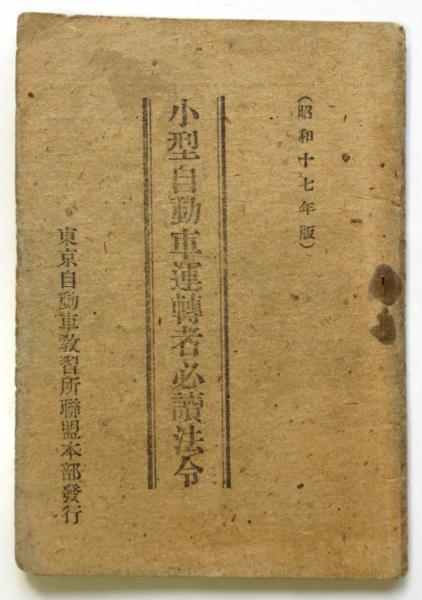 (昭和十七年版)
小型自動車運轉者必讀法令
東京自動車教習所聯盟本部發行